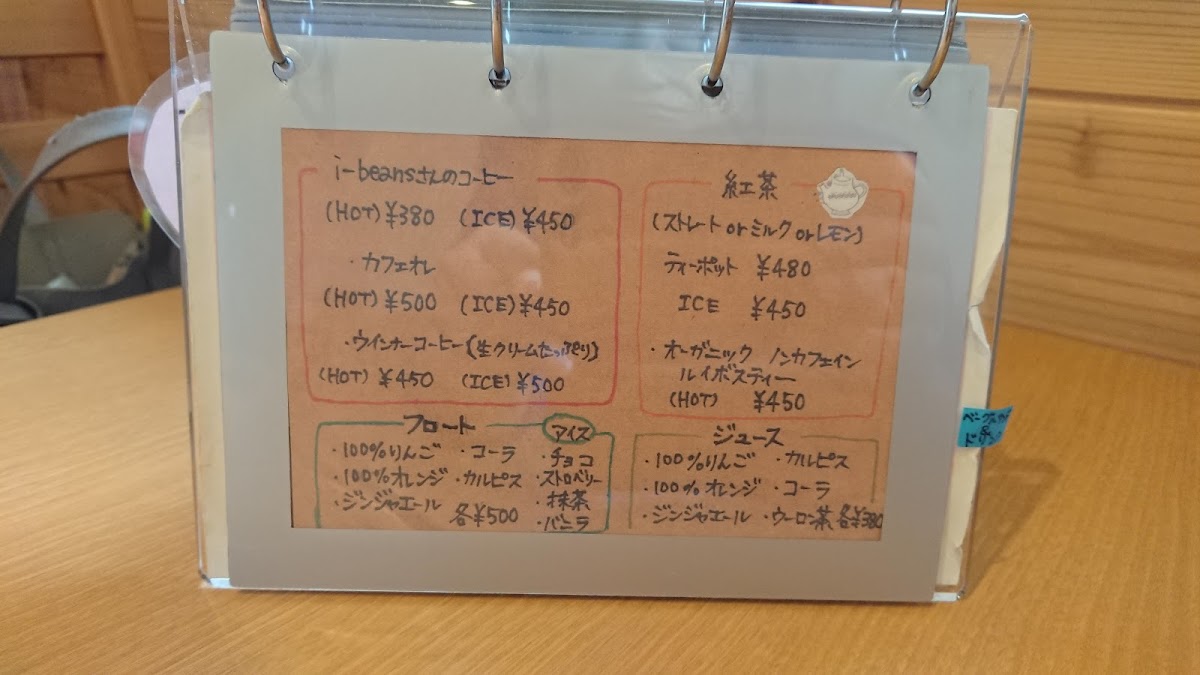 i-beansさんのコーヒー
(HOT) ¥380 (ICE) ¥450
・カフェオレ
(HOT) ¥500 (ICE) ¥450
・ウインナーコーヒー(生クリームたっぷり)
(HOT) ¥450 (ICE) ¥500
紅茶
(ストレート or ミルク or レモン)
ティーポット ¥480
ICE ¥450
・オーガニック ノンカフェイン
ルイボスティー
(HOT) ¥450
フロート
・100%りんご ・コーラ
・100%オレンジ ・カルピス
・ジンジャエール 各¥500
アイス
・チョコ
・ストロベリー
・抹茶
・バニラ
ジュース
・100%りんご ・カルピス
・100%オレンジ ・コーラ
・ジンジャエール ・ウーロン茶 各¥380
&